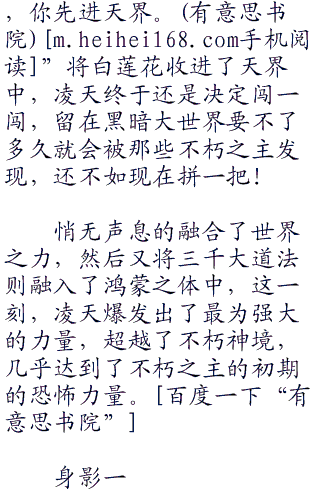 ，你先进天界。(有意思书
院)[m.heihei168.com手机阅
读]”将白莲花收进了天界
中，凌天终于还是决定闯一
闯，留在黑暗大世界要不了
多久就会被那些不朽之主发
现，还不如现在拼一把！
悄无声息的融合了世界
之力，然后又将三千大道法
则融入了鸿蒙之体中，这一
刻，凌天爆发出了最为强大
的力量，超越了不朽神境，
几乎达到了不朽之主的初期
的恐怖力量。[百度一下“有
意思书院”]
身影一